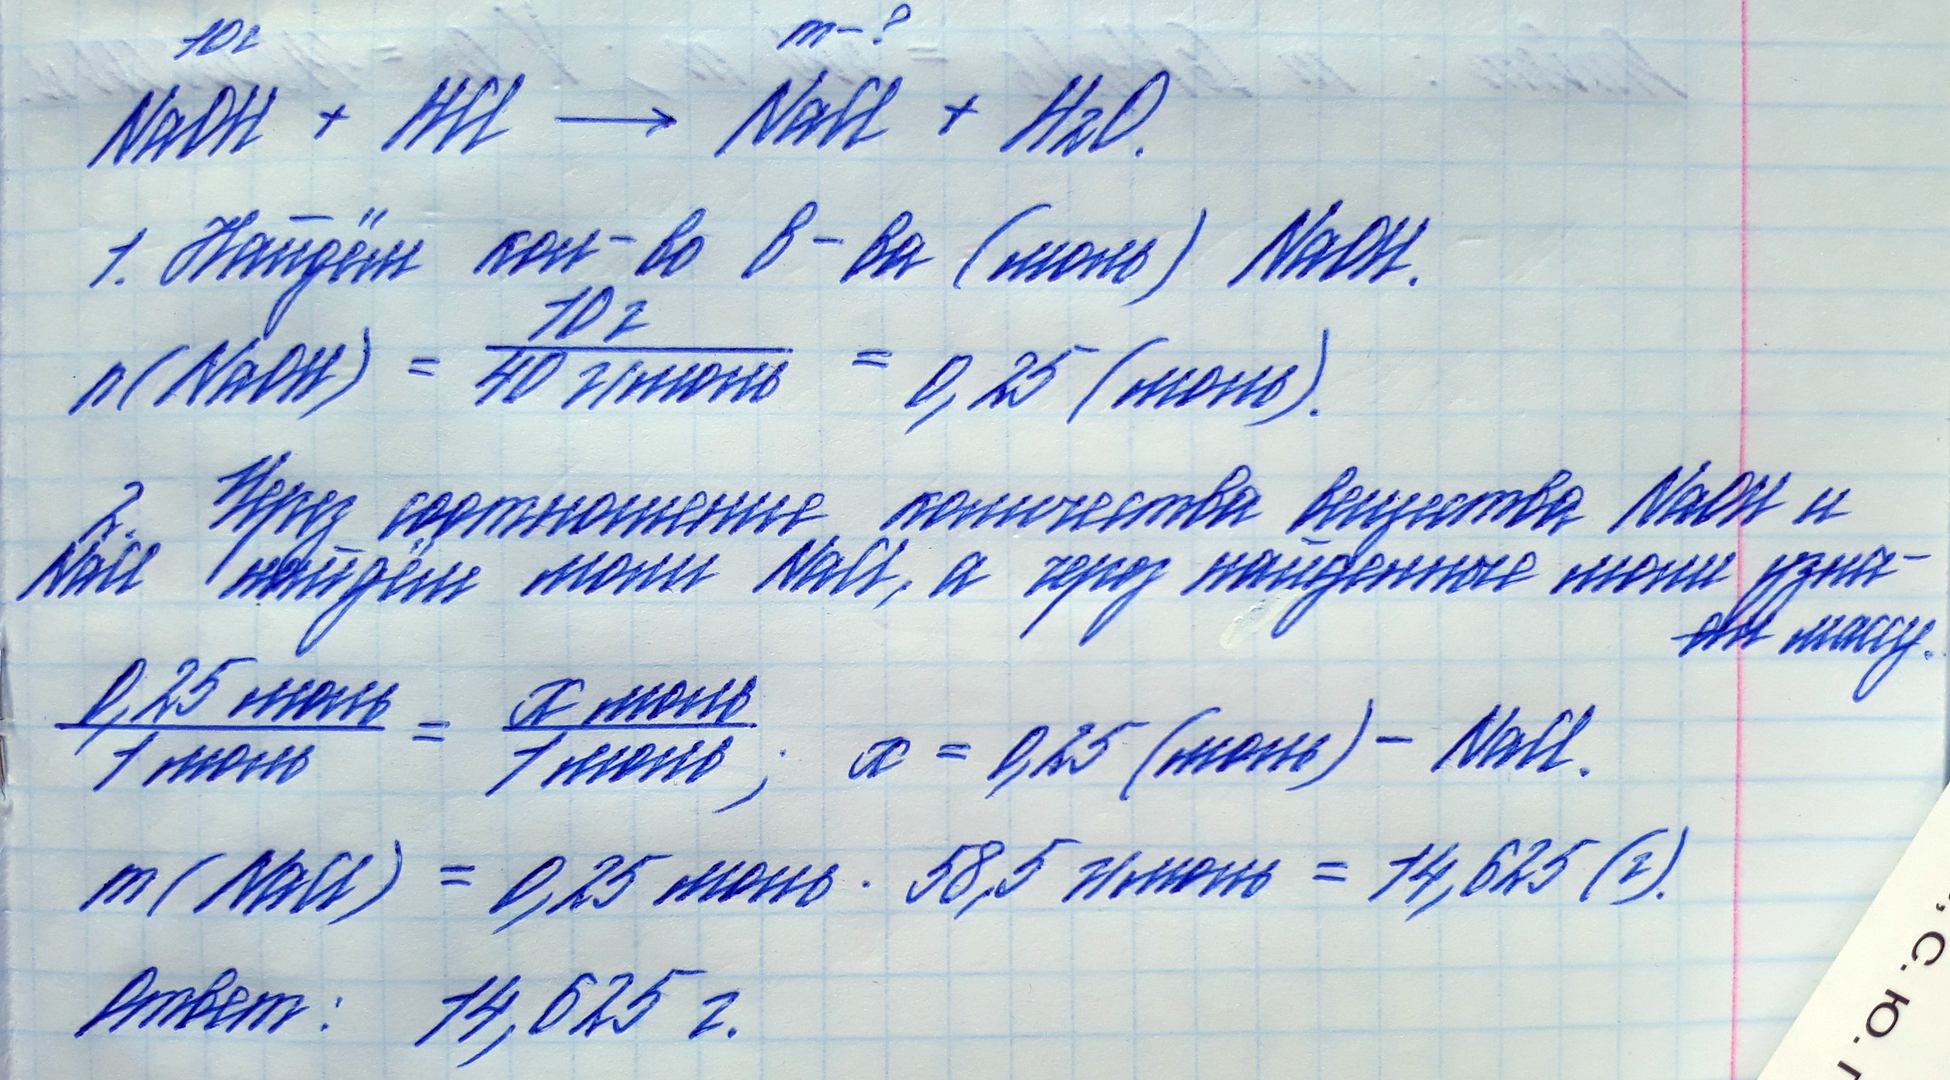 10г m-?
NaOH + HCl → NaCl + H₂O.
1. Найдём кол-во в-ва (моль) NaOH.
n(NaOH) = 10 г / 40 г/моль = 0,25 (моль).
2. Через соотношение количества вещества NaOH и
NaCl найдём моли NaCl, а через найденные моли узна-
ем массу.
0,25 моль / 1 моль = x моль / 1 моль ; x = 0,25 (моль) - NaCl.
m(NaCl) = 0,25 моль · 58,5 г/моль = 14,625 (г).
Ответ: 14,625 г.
С. Ю. Г